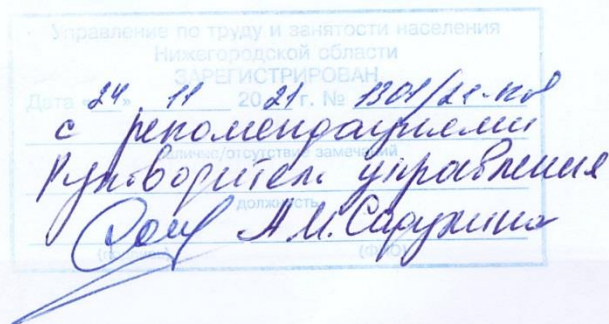 Управление по труду и занятости населения
Нижегородской области
ЗАРЕГИСТРИРОВАН
Дата «24» 11 2021 г. № 1301/21-кд
с рекомендациями
наличие/отсутствие замечаний
Руководитель управления
должность
А.М.
(ФИО)